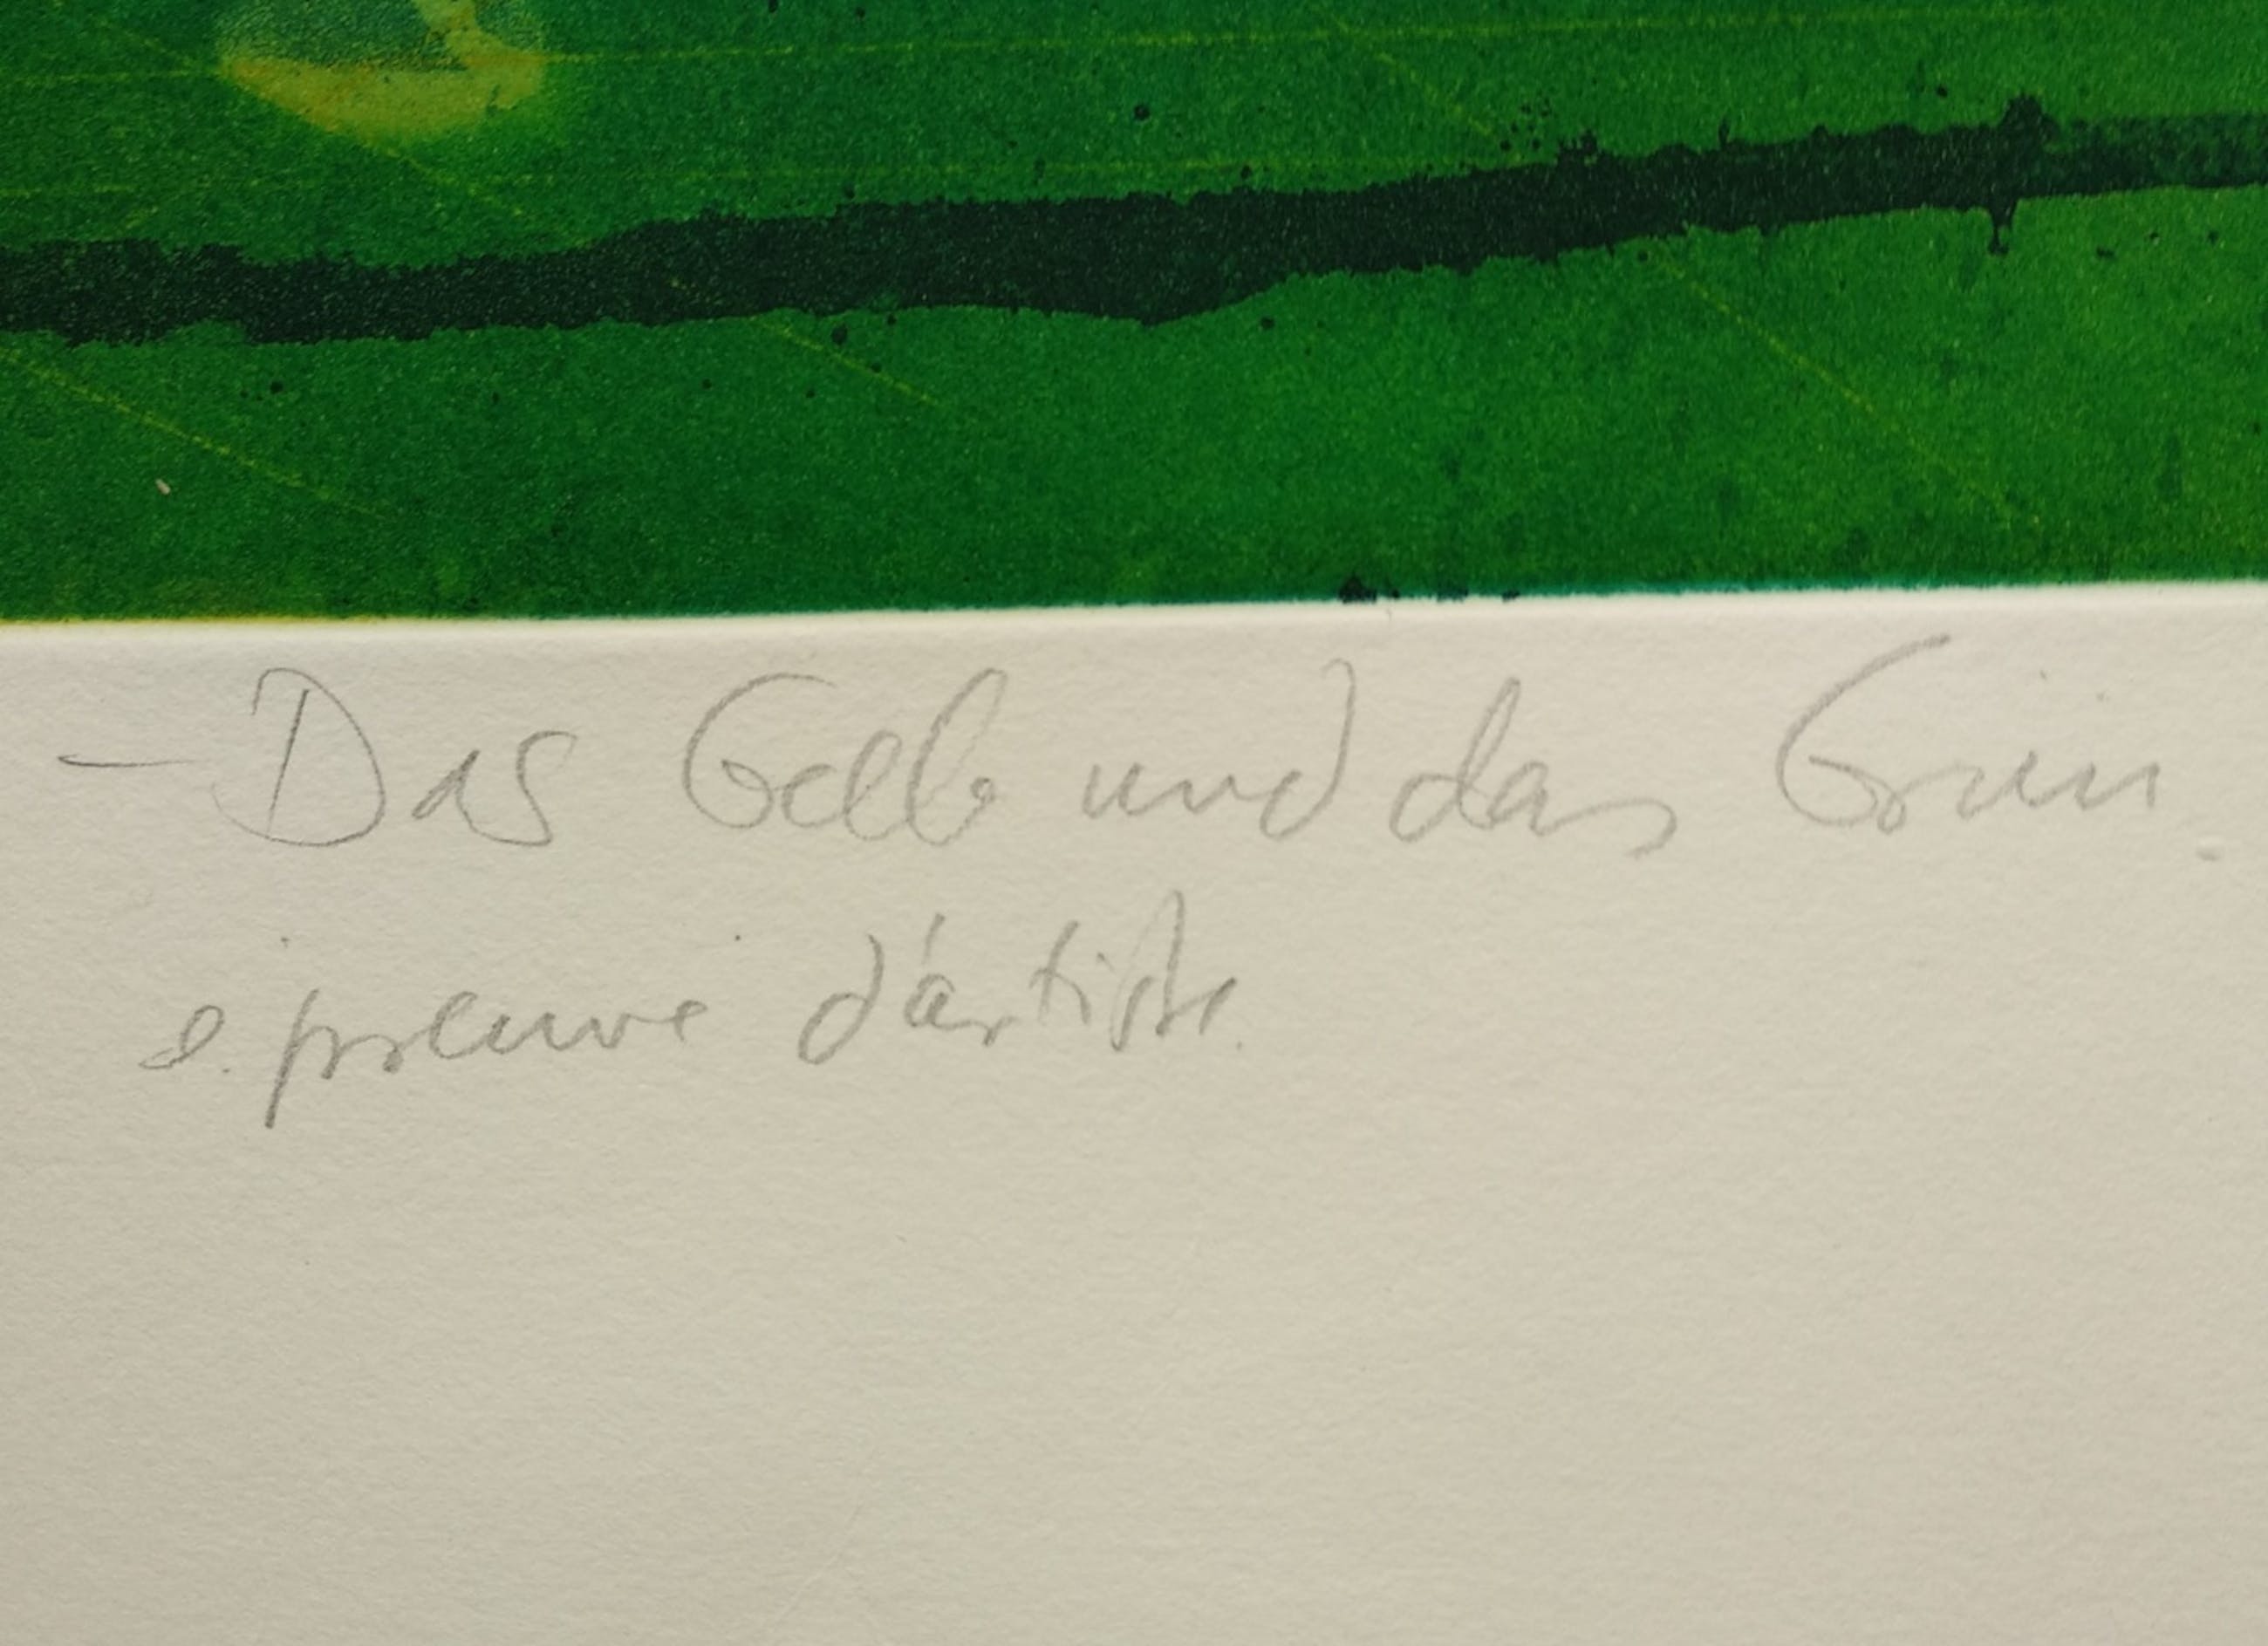 - Das Gelb und das Grün.
e.preuve d'artiste.